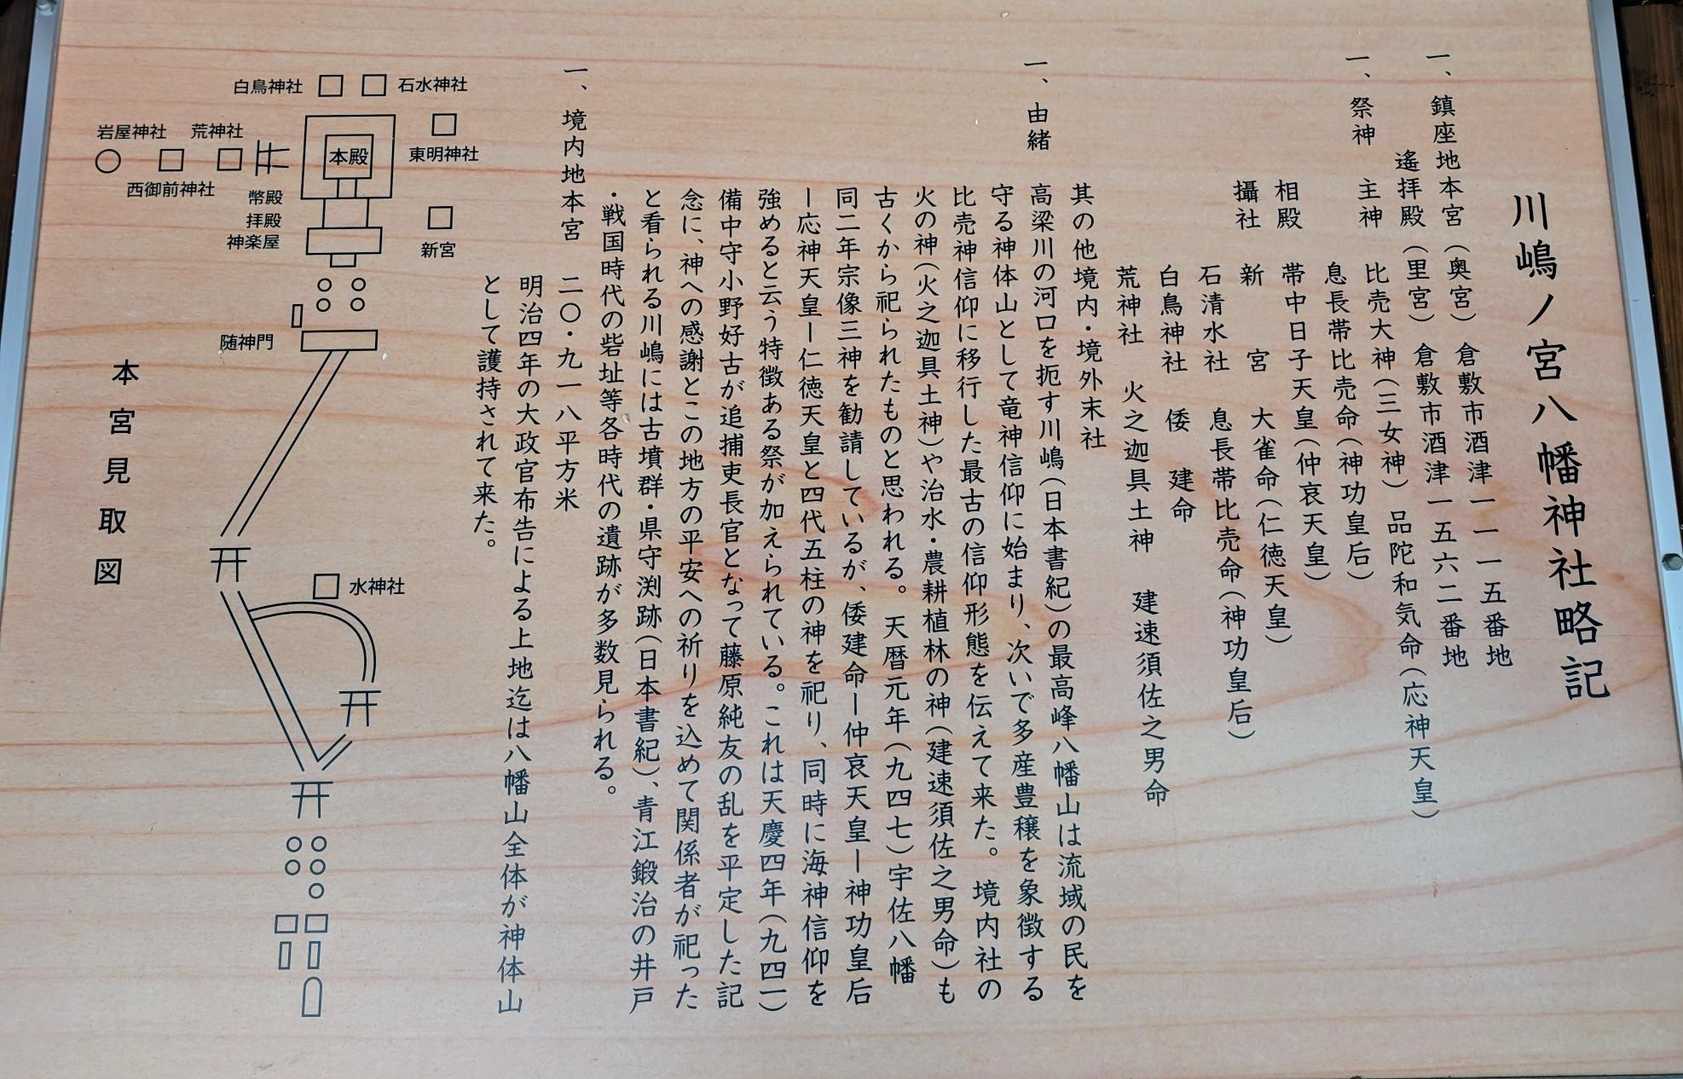 川嶋ノ宮八幡神社略記
一、鎮座地本宮（奥宮）倉敷市酒津一一一五番地
遙拝殿（里宮）倉敷市酒津一五六二番地
一、祭神　主神　比売大神（三女神）品陀和気命（応神天皇）
息長帯比売命（神功皇后）
相殿　帯中日子天皇（仲哀天皇）
攝社　新　宮　大雀命（仁徳天皇）
石清水社　息長帯比売命（神功皇后）
白鳥神社　倭　建命
荒神社　火之迦具土神　建速須佐之男命
其の他境内・境外末社
一、由緒　高梁川の河口を扼す川嶋（日本書紀）の最高峰八幡山は流域の民を
守る神体山として竜神信仰に始まり、次いで多産豊穣を象徴する
比売神信仰に移行した最古の信仰形態を伝えて来た。境内社の
火の神（火之迦具土神）や治水・農耕植林の神（建速須佐之男命）も
古くから祀られたものと思われる。天暦元年（九四七）宇佐八幡
同二年宗像三神を勧請しているが、倭建命ー仲哀天皇ー神功皇后
ー応神天皇ー仁徳天皇と四代五柱の神を祀り、同時に海神信仰を
強めると云う特徴ある祭が加えられている。これは天慶四年（九四一）
備中守小野好古が追捕吏長官となって藤原純友の乱を平定した記
念に、神への感謝とこの地方の平安への祈りを込めて関係者が祀った
と看られる川嶋には古墳群・県守渕跡（日本書紀）、青江鍛治の井戸
・戦国時代の砦址等各時代の遺跡が多数見られる。
一、境内地本宮　二〇・九一八平方米
明治四年の大政官布告による上地迄は八幡山全体が神体山
として護持されて来た。
白鳥神社
石水神社
岩屋神社
荒神社
本殿
東明神社
西御前神社
幣殿
拝殿
神楽屋
新宮
随神門
水神社
本宮見取図